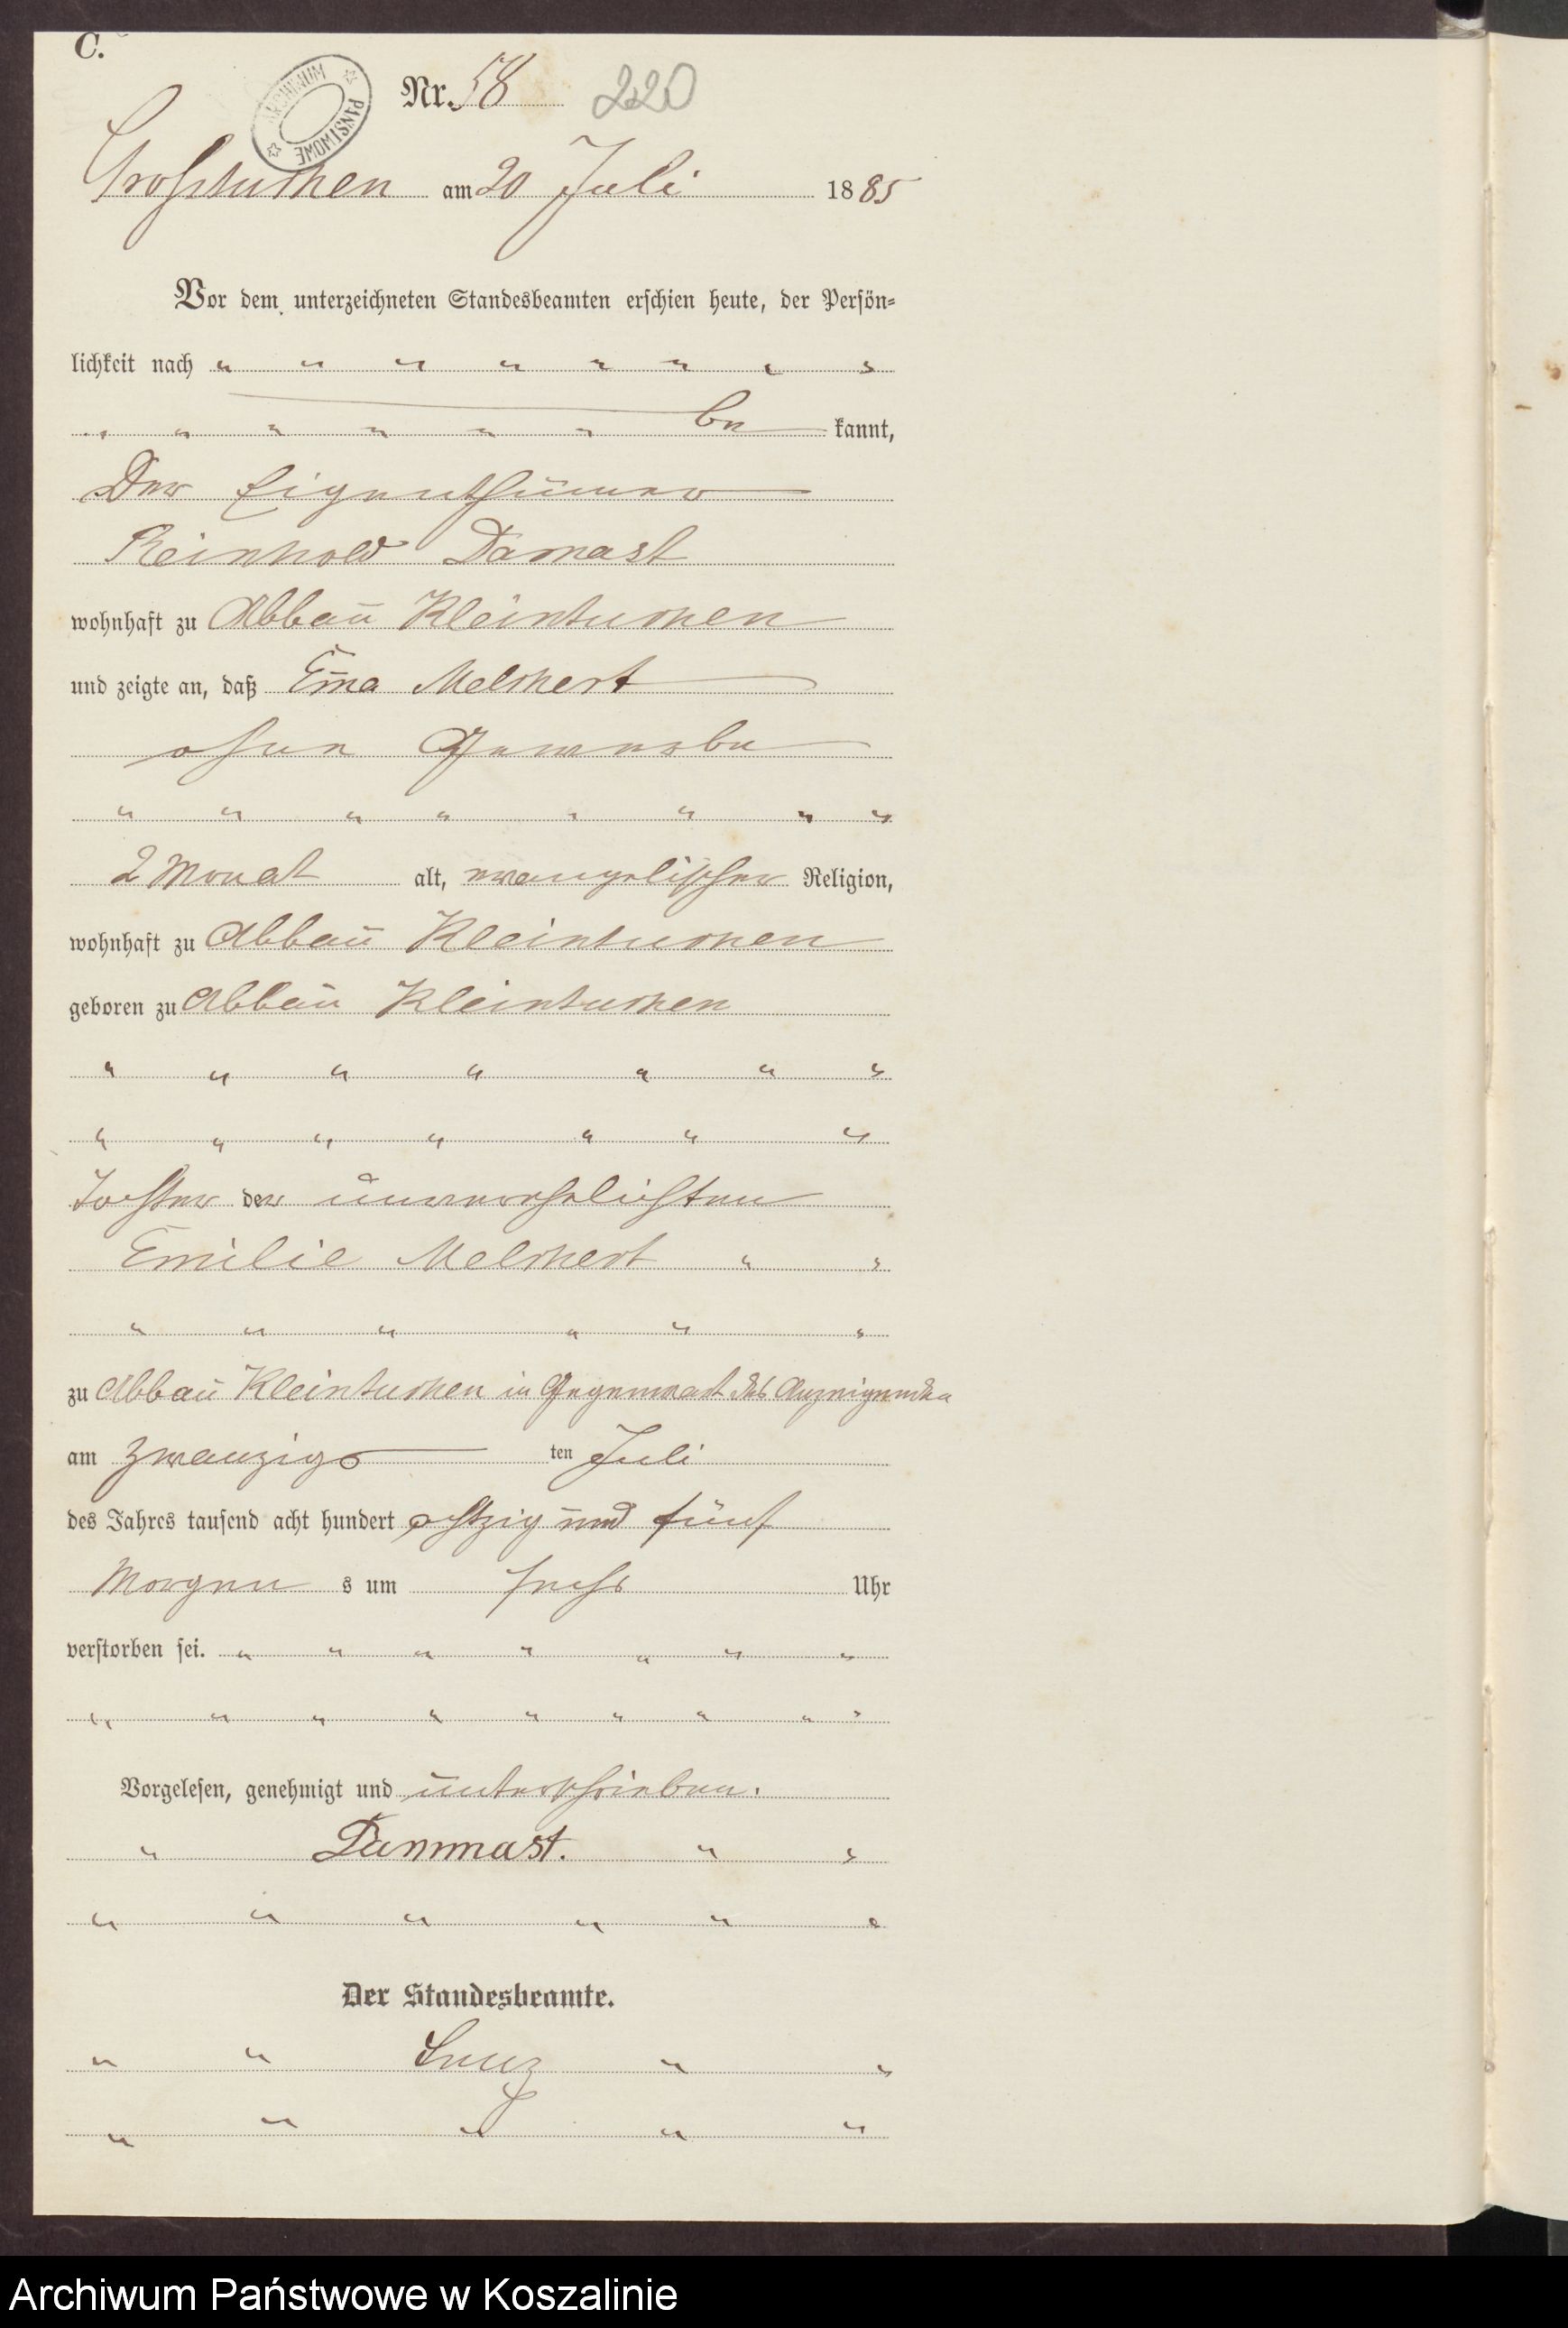 C.
ARCHIWUM PAŃSTWOWE
Nr. 58 220
Grosstuchen am 20 Juli 1885
Vor dem unterzeichneten Standesbeamten erschien heute, der Persön-
lichkeit nach " " " " " " " "
" " " " " " be kannt,
Der Eigenthümer
Reinhold Damast
wohnhaft zu Abbau Kleintuchen
und zeigte an, daß Em̄a Melchert
ohne Gewerbe
" " " " " " " "
2 Monat alt, evangelischer Religion,
wohnhaft zu Abbau Kleintuchen
geboren zu Abbau Kleintuchen
" " " " " " "
" " " " " " "
Tochter der unverehelichten
Emilie Melchert " "
" " " " " "
zu Abbau Kleintuchen in Gegenwart des Anzeigenden
am zwanzigs ten Juli
des Jahres tausend acht hundert achtzig und fünf
Morgen s um sechs Uhr
verstorben sei. " " " " " " "
" " " " " " " " "
Vorgelesen, genehmigt und unterschrieben.
" Dammast. " "
" " " " " "
Der Standesbeamte.
" " " "
" " " " "
Archiwum Państwowe w Koszalinie